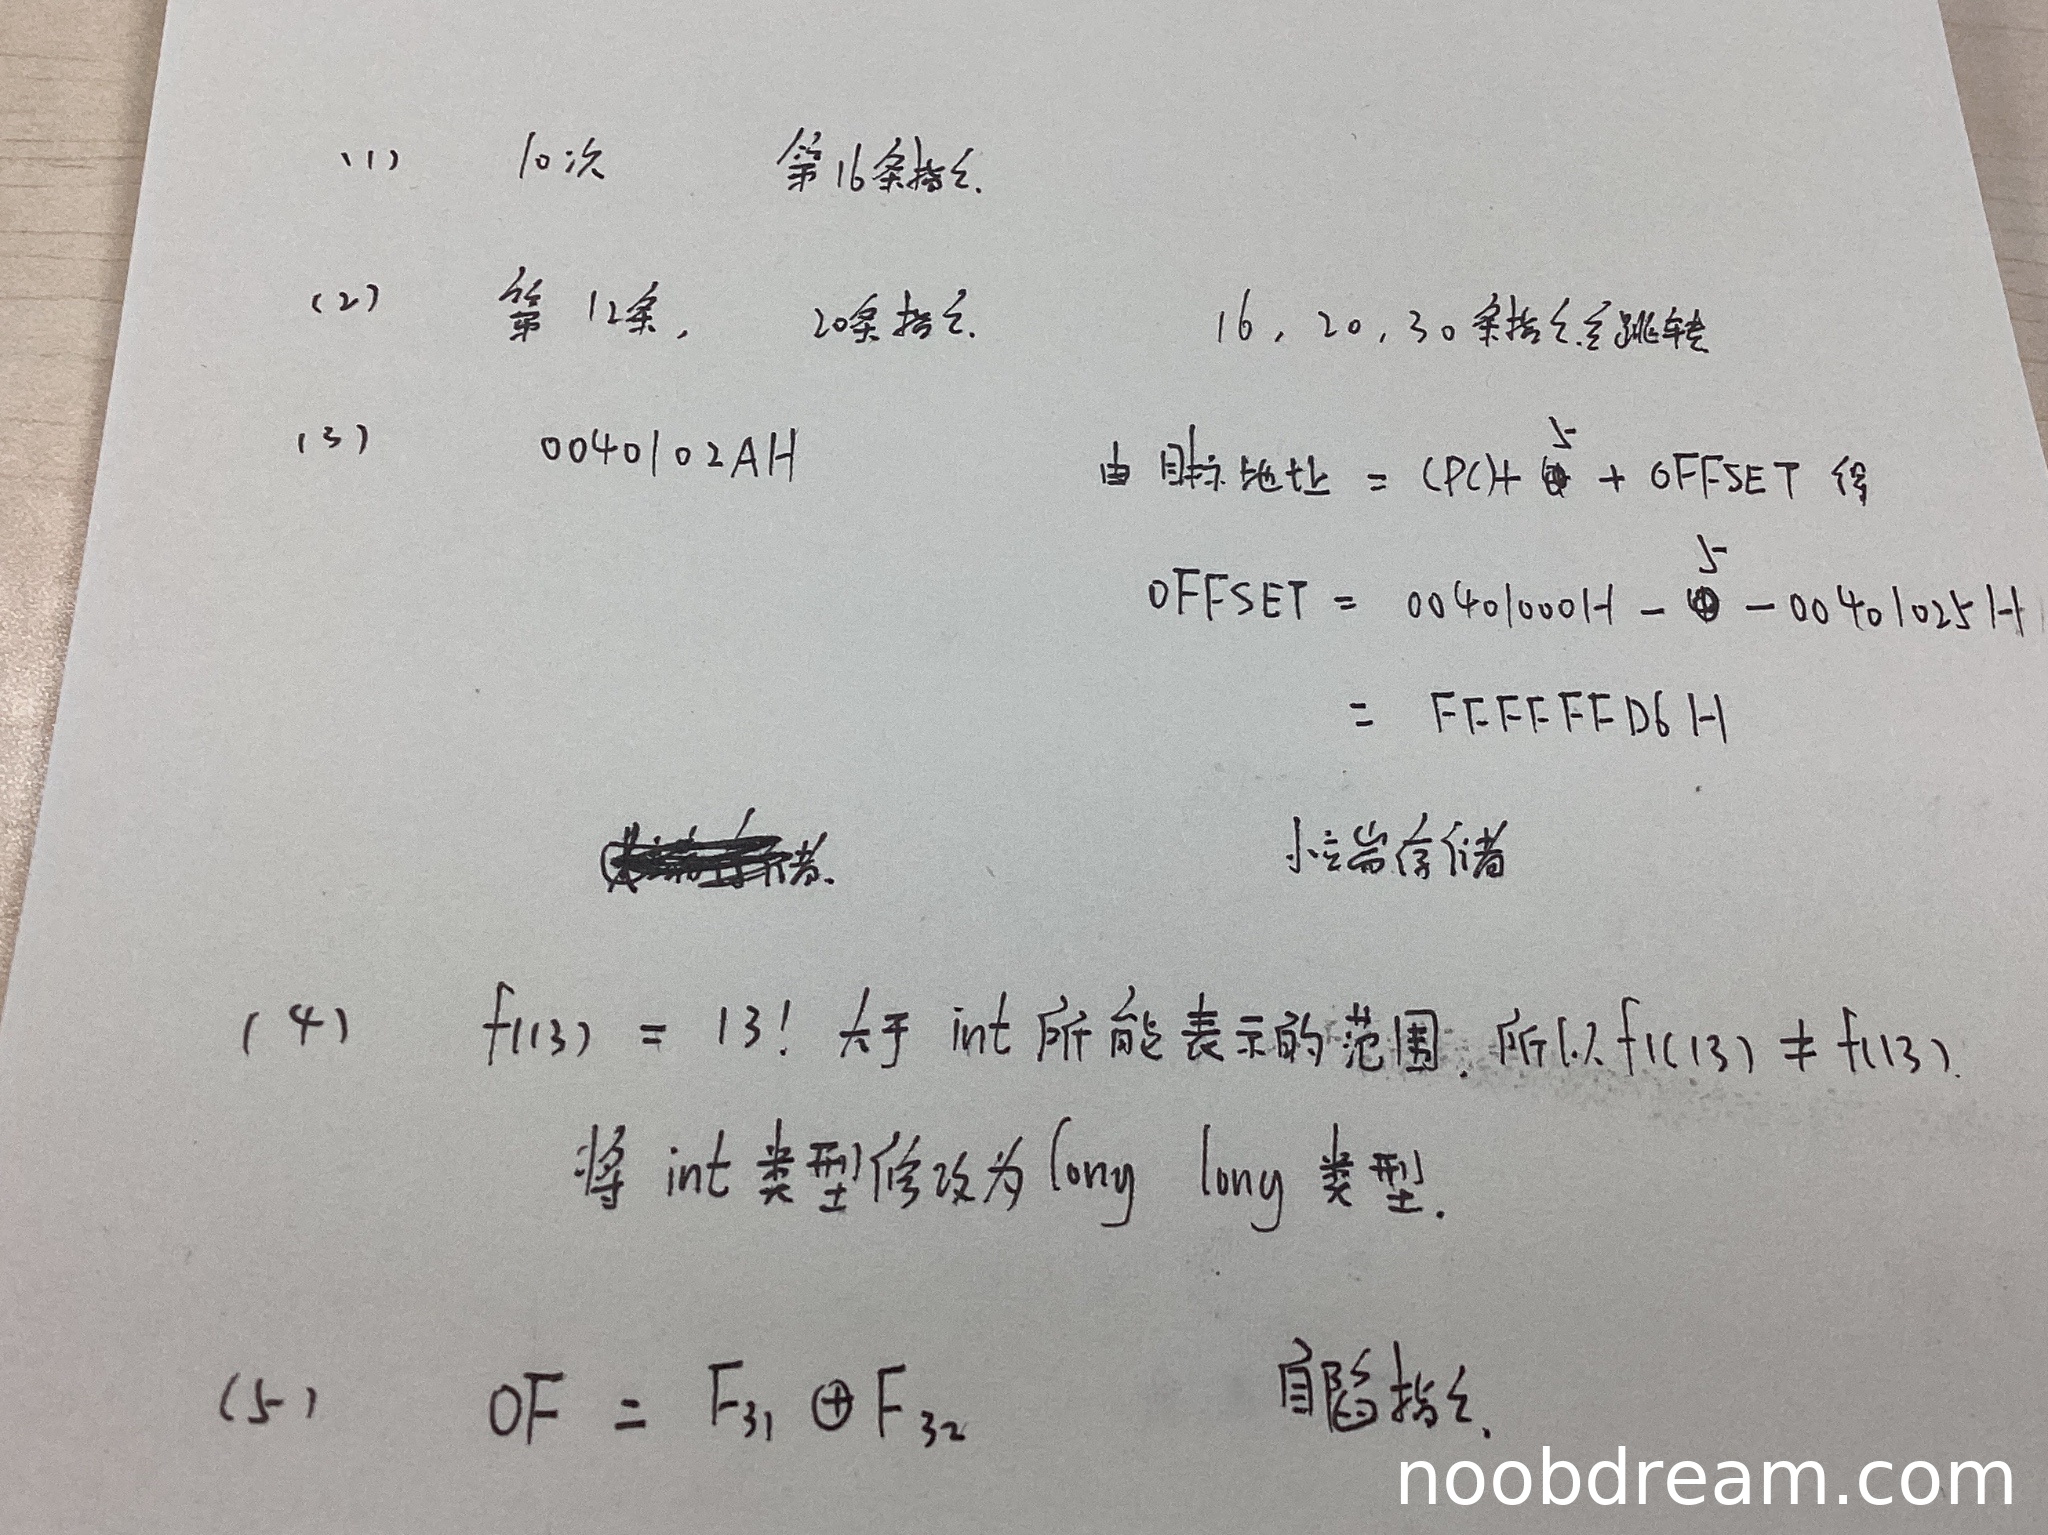 (1) 10次 第16条指令.
(2) 第 12条, 20条指令. 16, 20, 30 条指令会跳转
(3) 0040102AH 由目标地址 = (PC)+ 5 + OFFSET 得
OFFSET = 00401000H - 5 - 00401025H
= FFFFFFD6H
小端存储
(4) f(13) = 13! 大于 int 所能表示的范围. 所以 f1(13) ≠ f(13).
将 int 类型修改为 long long 类型.
(5) OF = F31 ⊕ F32 自陷指令.
noobdream.com